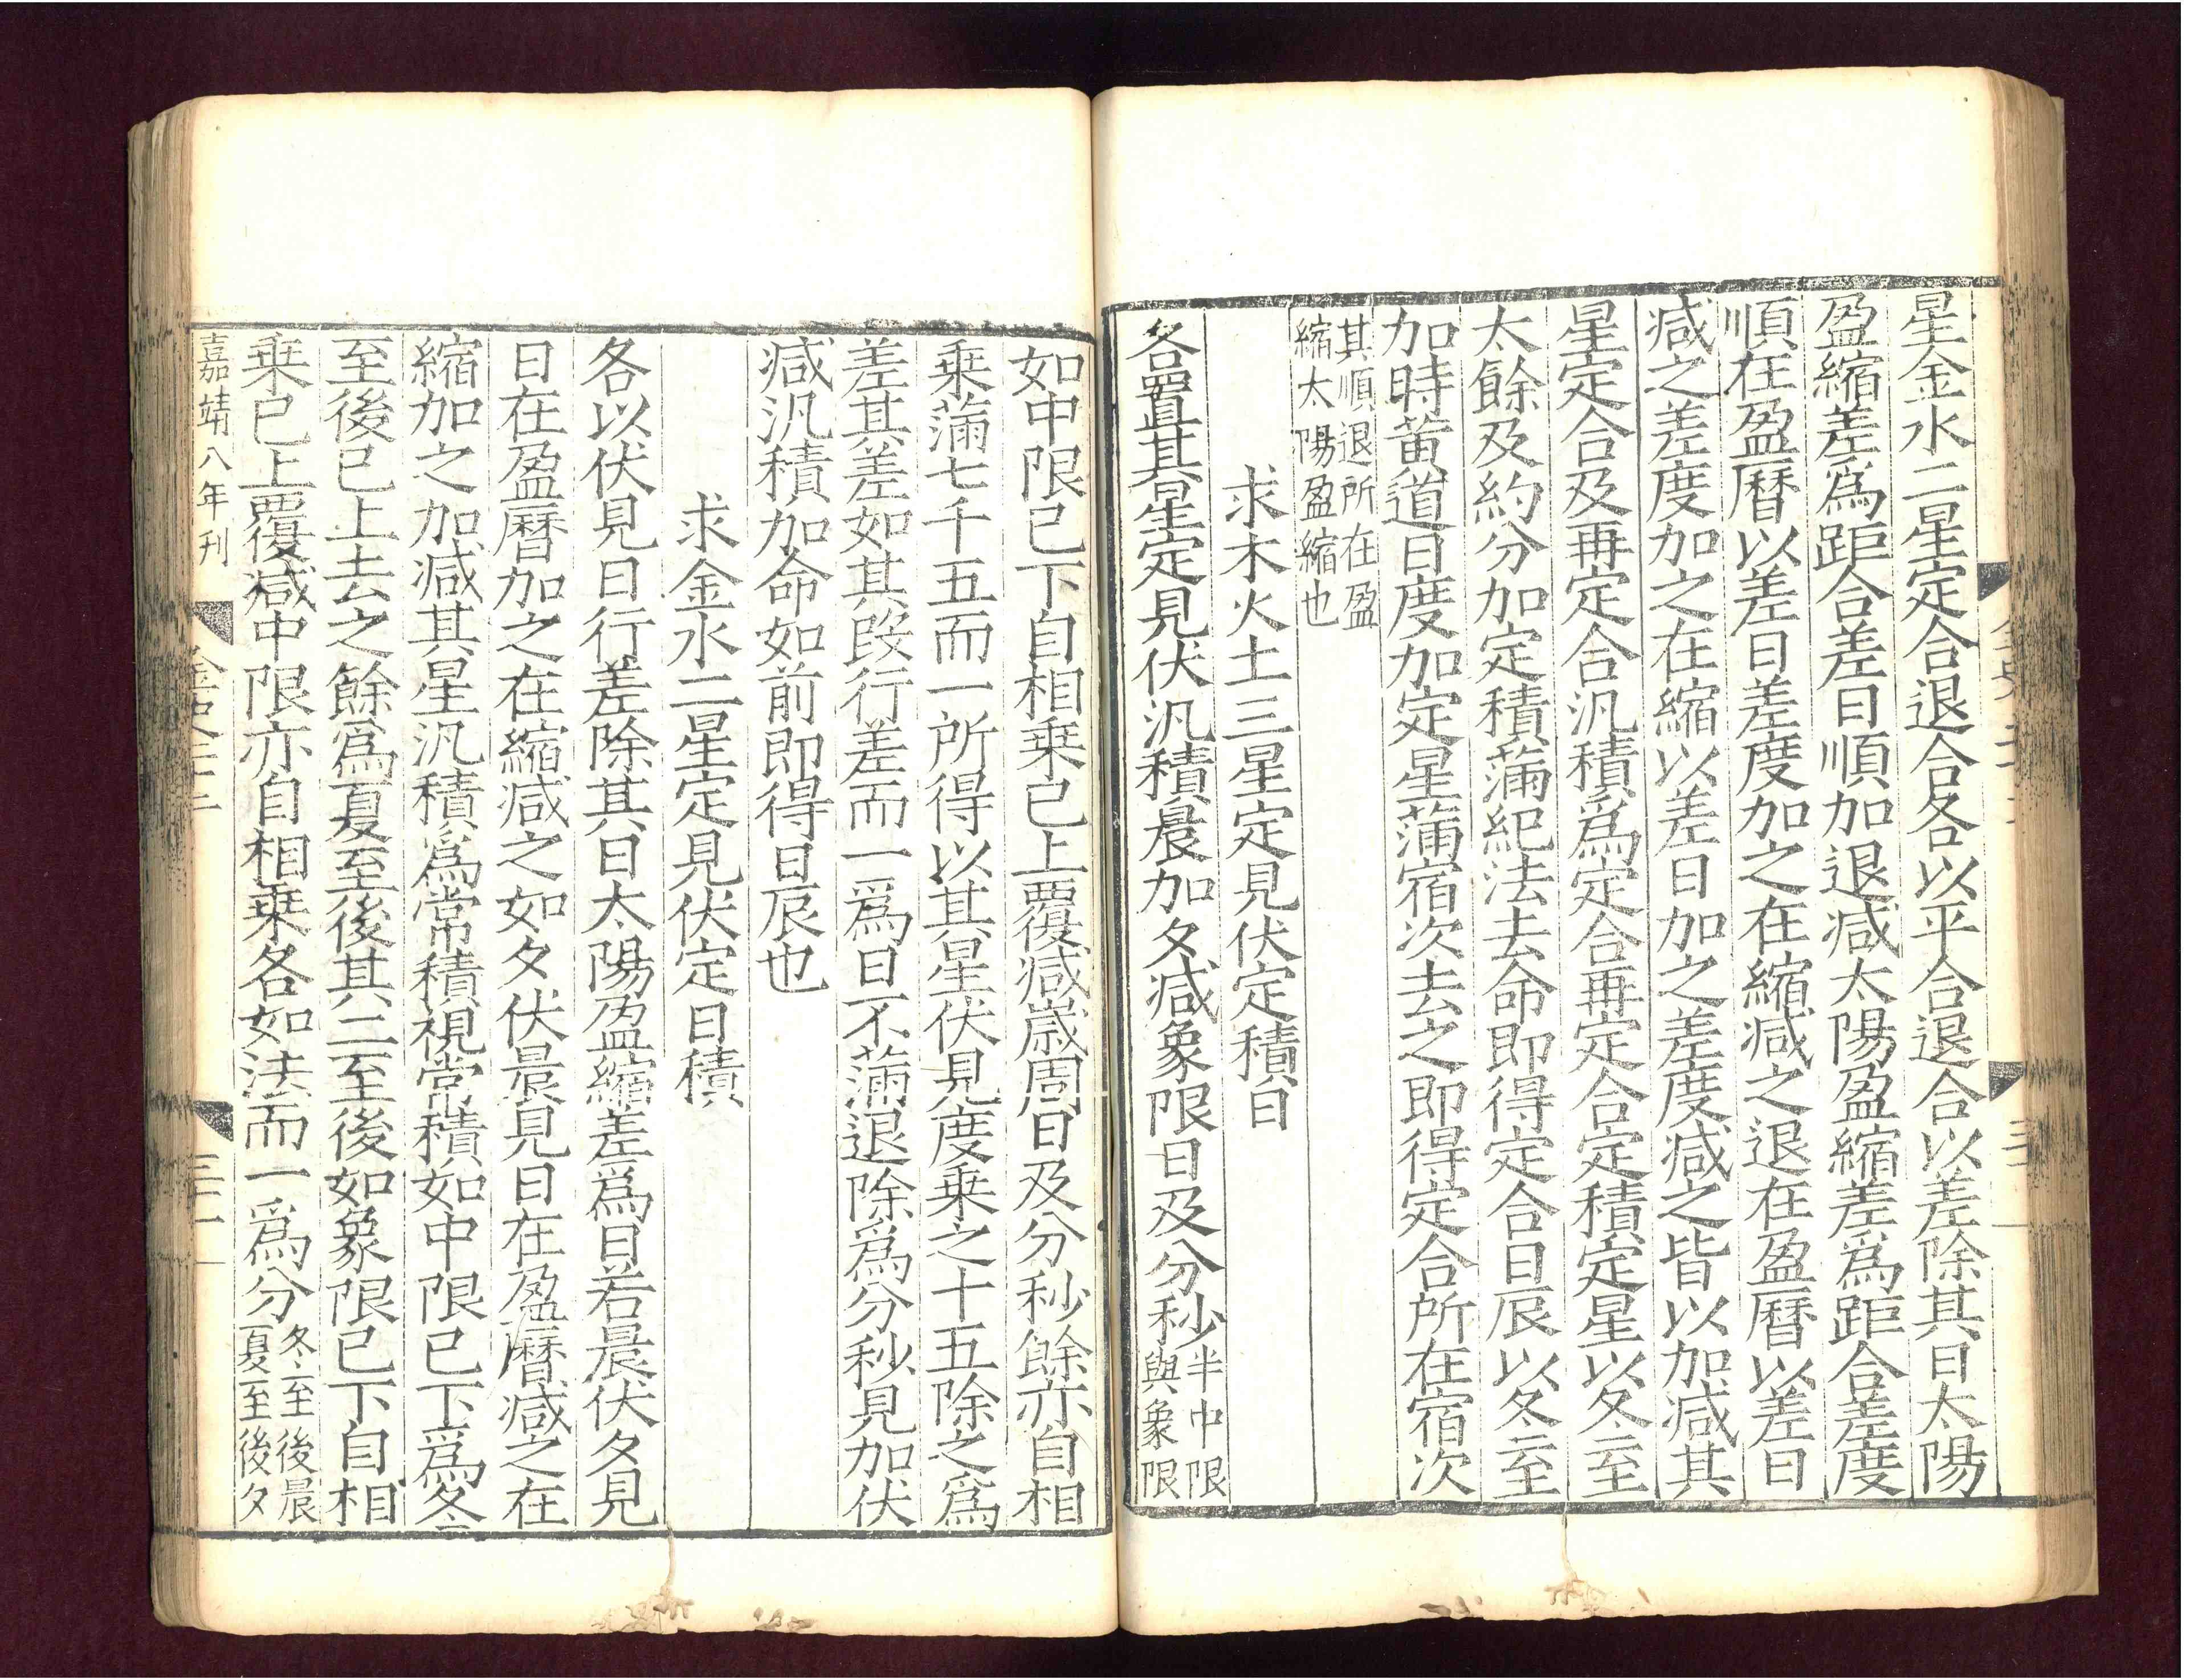 星金水二星定合退合各以平合退合以差除其日太陽
盈縮差爲距合差日順加退减太陽盈縮差爲距合差度
順在盈曆以差日差度加之在縮减之退在盈曆以差日
减之差度加之在縮以差日加之差度减之皆以加减其
星定合及再定合汎積爲定合再定合定積定星以冬至
大餘及約分加定積滿紀法去命即得定合日辰以冬至
加時黃道日度加定星滿宿次去之即得定合所在宿次
其順退所在盈
縮太陽盈縮也
求木火土三星定見伏定積日
各置其星定見伏汎積晨加夕减象限日及分秒半中限
與象限
如中限已下自相乗已上覆减歳周日及分秒餘亦自相
乗滿七千五而一所得以其星伏見度乗之十五除之爲
差其差如其段行差而一爲日不滿退除爲分秒見加伏
减汎積加命如前即得日辰也
求金水二星定見伏定日積
各以伏見日行差除其日太陽盈縮差爲日若晨伏夕見
日在盈曆加之在縮减之如夕伏晨見日在盈曆减之在
縮加之加减其星汎積爲常積視常積如中限已下爲冬
至後已上去之餘爲夏至後其二至後如象限已下自相
乗已上覆减中限亦自相乗各如法而一爲分冬至後晨
夏至後夕
嘉靖八年刊
金史二十二